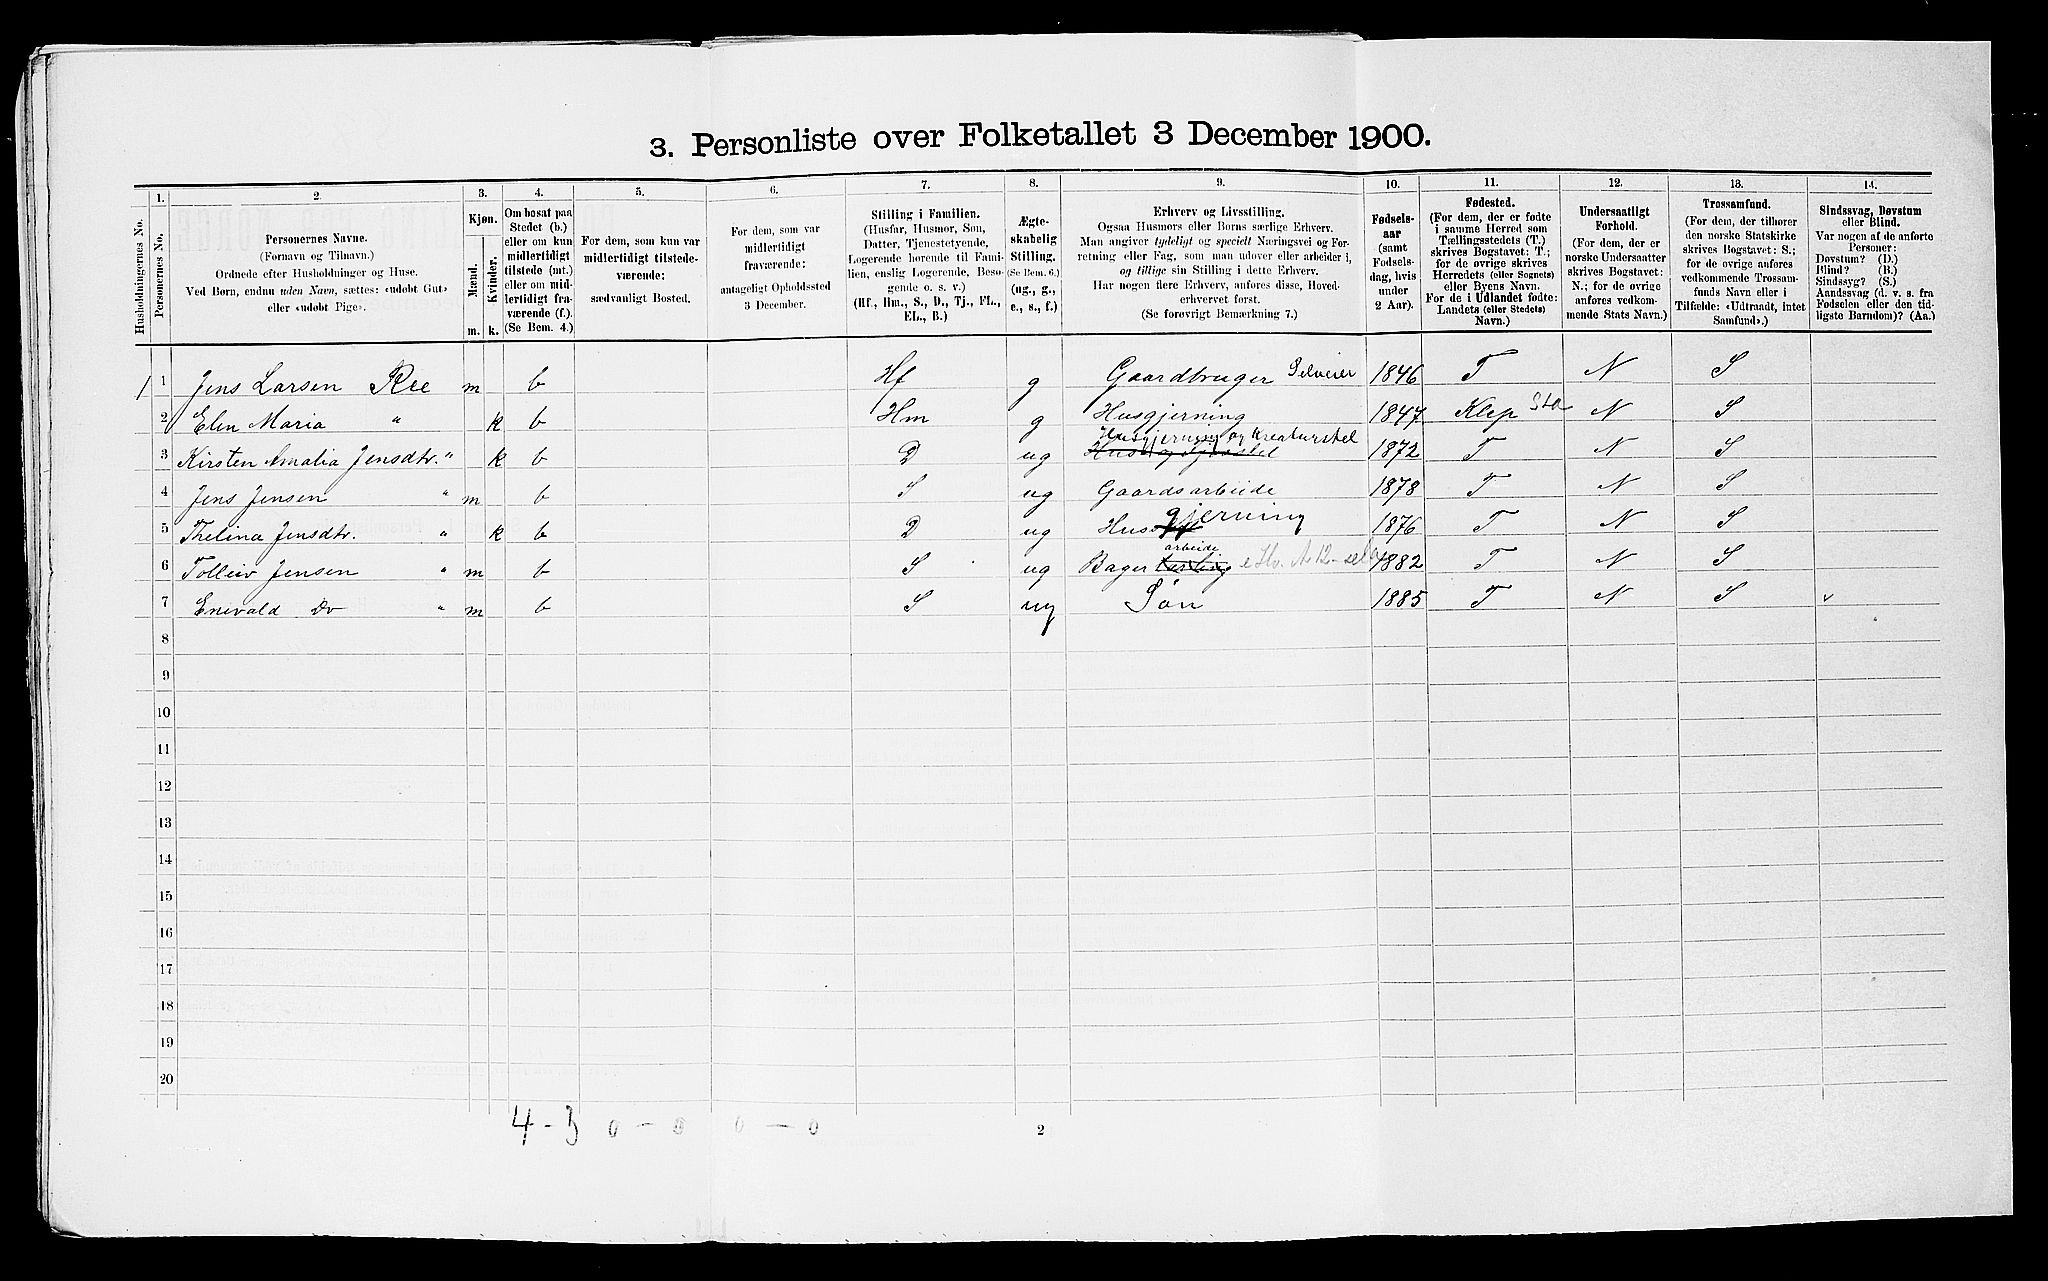 3. Personliste over Folketallet 3 December 1900.
1.
2.
3.
4.
5.
6.
7.
8.
9.
10.
11.
12.
13.
14.
Husholdningernes No.
Personernes No.
Personernes Navne.
(Fornavn og Tilnavn.)
Ordnede efter Husholdninger og Huse.
Ved Børn, endnu uden Navn, sættes: «udøbt Gut»
eller «udøbt Pige».
Kjøn.
Mænd.
Kvinder.
m.
k.
Om bosat paa
Stedet (b.)
eller om kun
midlertidigt
tilstede (mt.)
eller om mid-
lertidigt fra-
værende (f.)
(Se Bem. 4.)
For dem, som kun var
midlertidigt tilstede-
værende:
sædvanligt Bosted.
For dem, som var
midlertidigt
fraværende:
antageligt Opholdssted
3 December.
Stilling i Familien.
(Husfar, Husmor, Søn,
Datter, Tjenestetyende,
Logerende hørende til Fami-
lien, enslig Logerende, Besø-
gende o. s. v.)
(Hf., Hm., S., D., Tj., FL.,
EL., B.)
Ægte-
skabelig
Stilling.
(Se Bem. 6.)
(ug., g.,
e., s., f.)
Erhverv og Livsstilling.
Ogsaa Husmors eller Børns særlige Erhverv.
Man angiver tydeligt og specielt Næringsvei og For-
retning eller Fag, som man udover eller arbeider i,
og tillige sin Stilling i dette Erhverv.
Har nogen flere Erhverv, anføres disse, Hoved-
erhvervet først.
(Se forøvrigt Bemærkning 7.)
Fødsels-
aar
(samt
Fødsels-
dag, hvis
under
2 Aar).
Fødested.
(For dem, der er fødte
i samme Herred som
Tællingsstedets (T.)
skrives Bogstavet: T.;
for de øvrige skrives
Herredets (eller Sognets)
eller Byens Navn.
For de i Udlandet fødte:
Landets (eller Stedets)
Navn.)
Undersaatligt
Forhold.
(For dem, der er
norske Undersaatter
skrives Bogstavet:
N.; for de øvrige
anføres vedkom-
mende Stats Navn.)
Trossamfund.
(For dem, der tilhører
den norske Statskirke
skrives Bogstavet: S.;
for de øvrige anføres
vedkommende Trossam-
funds Navn eller i
Tilfælde: «Udtraadt, intet
Samfund».)
Sindssvag, Døvstum
eller Blind.
Var nogen af de anførte
Personer:
Døvstum? (D.)
Blind? (B.)
Sindssyg? (S.)
Aandssvag (d. v. s. fra
Fødselen eller den tid-
ligste Barndom)? (Aa.)
1 1 Jens Larsen Ree m b Hf g Gaardbruger Selveier 1846 T N S
2 Elen Maria " k b Hm g Husgjerning 1847 Klep Sta N S
3 Kirsten Amalia Jensdtr. " k b D ug Husgjerning og Kreaturstel 1872 T N S
4 Jens Jensen " m b S ug Gaardsarbeide 1878 T N S
5 Thelina Jensdtr. " k b D ug Husgjerning 1876 T N S
6 Tolleiv Jensen " m b S ug Bagerarbeide 1882 T N S
7 Enevald Do " m b S ug Søn 1885 T N S v
8
9
10
11
12
13
14
15
16
17
18
19
20
4 - 3 0 - 0 0 - 0
2